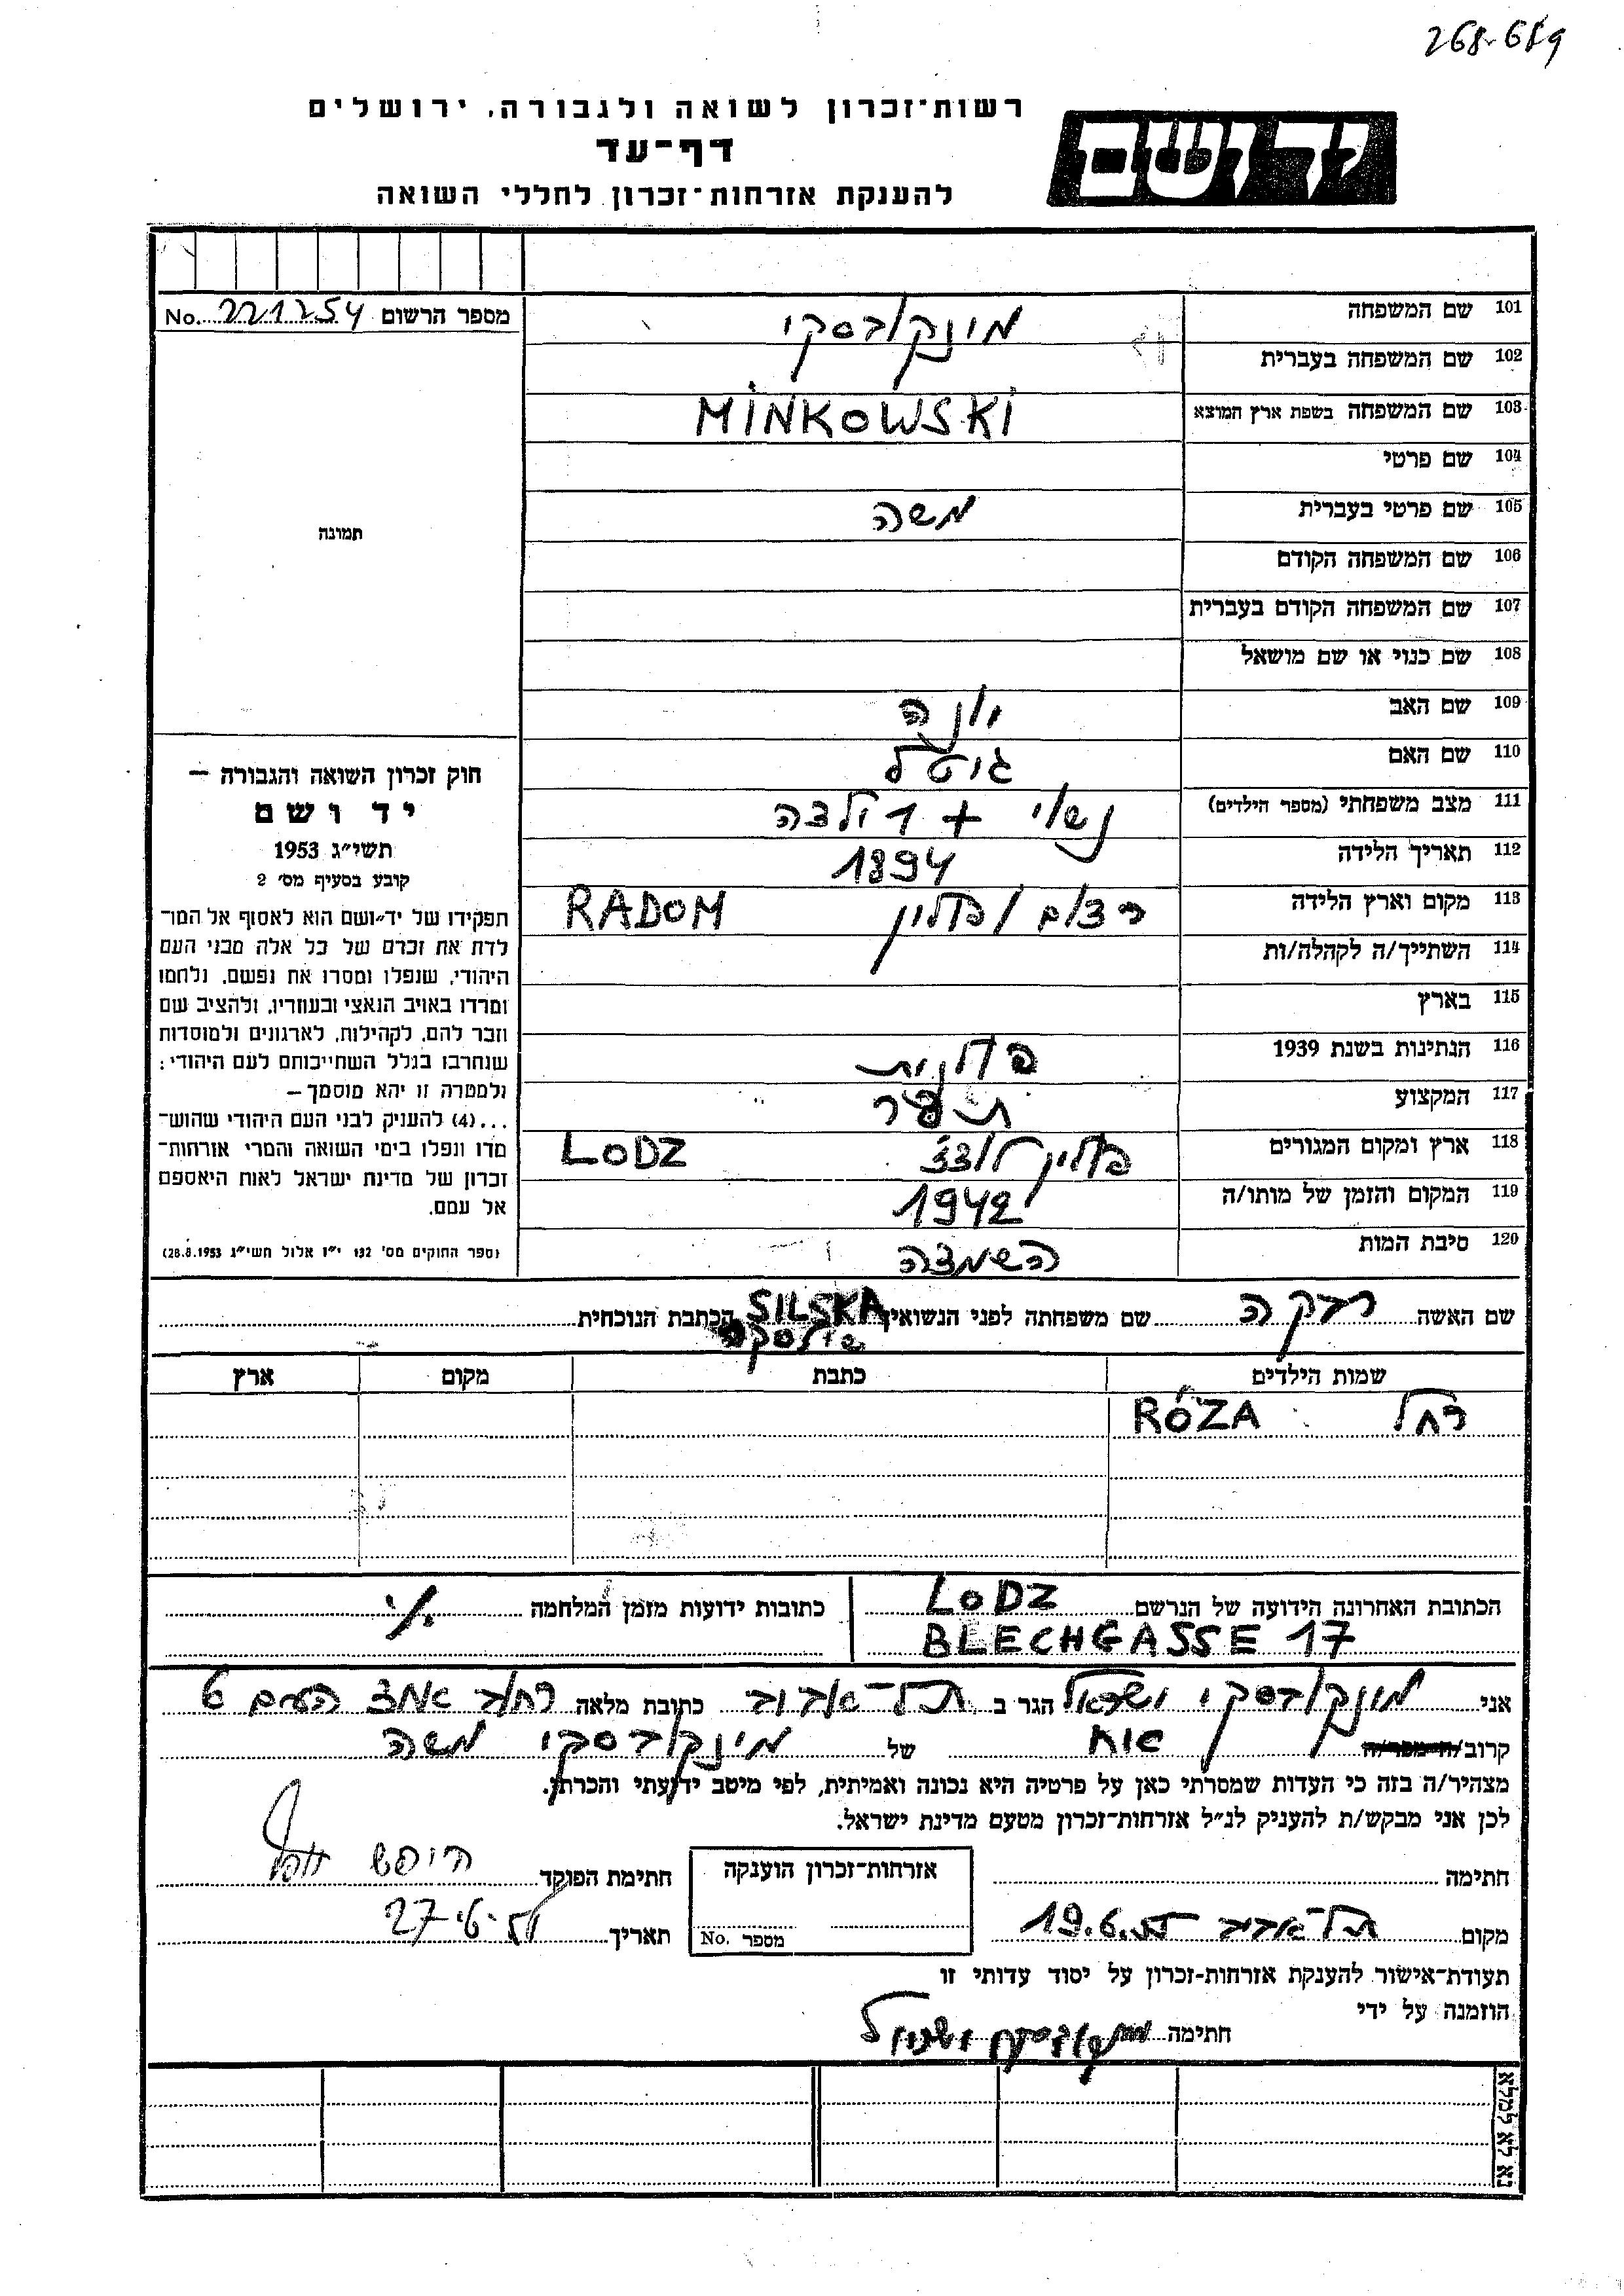 268-659
רשות־זכרון לשואה ולגבורה, ירושלים
דף־עד
להענקת אזרחות־זכרון לחללי השואה
יד ושם
מספר הרשום No. 221254
101 שם המשפחה מינקובסקי
102 שם המשפחה בעברית
103 שם המשפחה בשפת ארץ המוצא MINKOWSKI
104 שם פרטי
105 שם פרטי בעברית משה
106 שם המשפחה הקודם
107 שם המשפחה הקודם בעברית
108 שם כנוי או שם מושאל
109 שם האב יונה
110 שם האם גיטל
111 מצב משפחתי (מספר הילדים) נשוי + 1 ילדה
112 תאריך הלידה 1894
113 מקום וארץ הלידה רדום / פולין RADOM
114 השתייך/ה לקהלה/ות
115 בארץ
116 הנתינות בשנת 1939 פולנית
117 המקצוע תופר
118 ארץ ומקום המגורים פולין לודז LODZ
119 המקום והזמן של מותו/ה 1942
120 סיבת המות השמדה
תמונה
חוק זכרון השואה והגבורה —
יד ושם
תשי״ג 1953
קובע בסעיף מס׳ 2
תפקידו של יד־ושם הוא לאסוף אל המו־
לדת את זכרם של כל אלה מבני העם
היהודי, שנפלו ומסרו את נפשם, נלחמו
ומרדו באויב הנאצי ובעוזריו, ולהציב שם
וזכר להם, לקהילות, לארגונים ולמוסדות
שנחרבו בגלל השתייכותם לעם היהודי;
ולמטרה זו יהא מוסמך —
...(4) להעניק לבני העם היהודי שהוש־
מדו ונפלו בימי השואה והמרי אזרחות־
זכרון של מדינת ישראל לאות היאספם
אל עמם.
(ספר החוקים מס׳ 132 י״ז אלול תשי״ג 28.8.1953)
שם האשה רבקה שם משפחתה לפני הנשואין SILSKA שילסקה הכתבת הנוכחית
שמות הילדים כתבת מקום ארץ
רחל RÓZA
הכתובת האחרונה הידועה של הנרשם LODZ
BLECHGASSE 17
כתובות ידועות מזמן המלחמה ./.
אני מינקובסקי ישראל הגר ב תל־אביב כתובת מלאה רחוב אחד העם 6
קרוב/ה אח של מינקובסקי משה
מצהיר/ה בזה כי העדות שמסרתי כאן על פרטיה היא נכונה ואמיתית, לפי מיטב ידיעתי והכרתי.
לכן אני מבקש/ת להעניק לנ״ל אזרחות־זכרון מטעם מדינת ישראל.
חתימה
אזרחות־זכרון הוענקה
מספר No.
חתימת הפוקד
מקום תל־אביב 19.6.55
תאריך 27-6-55
תעודת־אישור להענקת אזרחות־זכרון על יסוד עדותי זו
הוזמנה על ידי
חתימה מינקובסקי ישראל
נא לא למלא